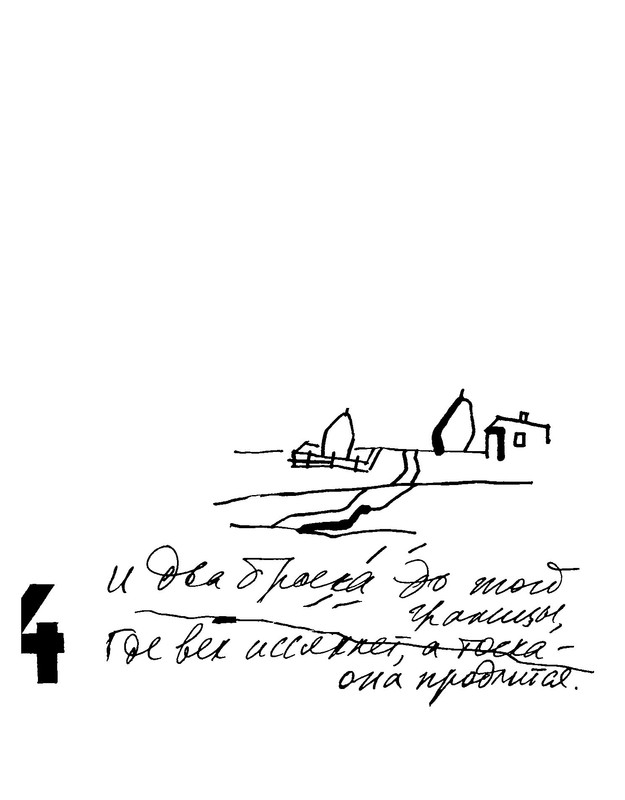 и два броска до той
границы,
4
где век иссякнет, а тоска -
она продлится.